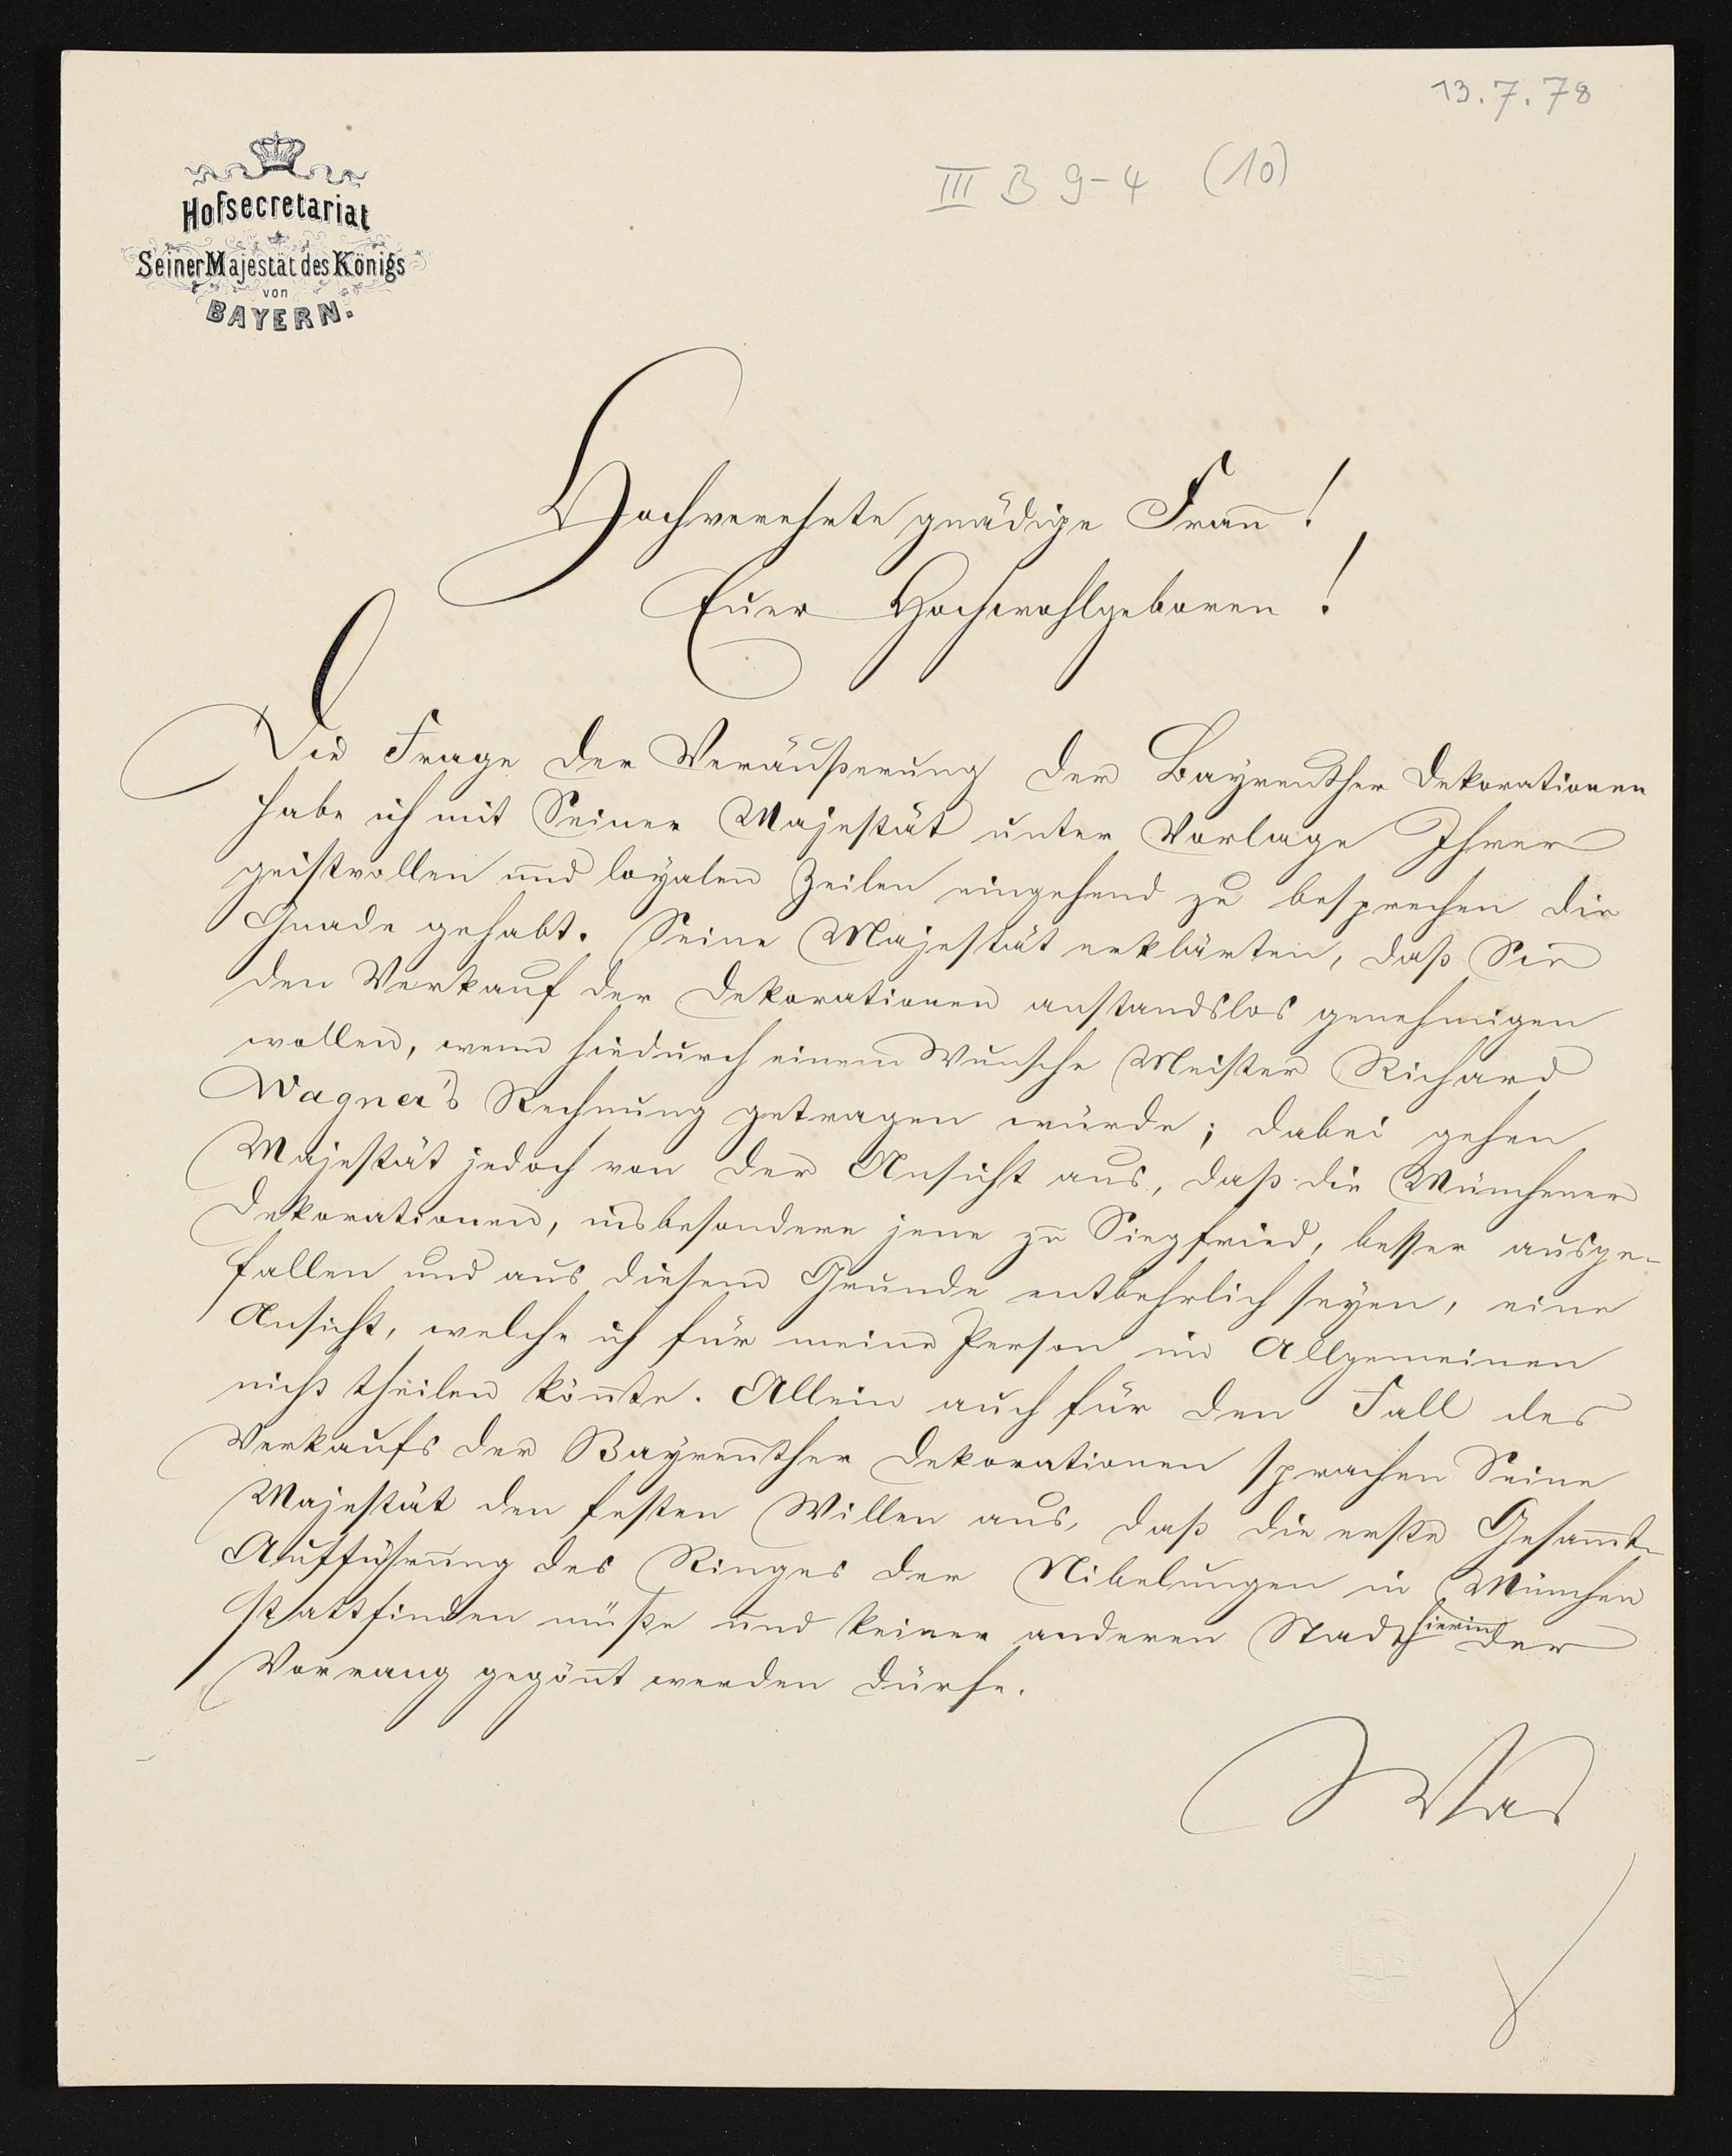 13.7.78
III B 9-4 (10)
Hofsecretariat
Seiner Majestät des Königs
von
BAYERN.
Hochverehrte gnädige Frau!
Euer Hochwohlgeboren!
Die Frage der Veräußerung der Bayreuther Dekorationen
habe ich mit Seiner Majestät unter Vorlage Ihrer
geistvollen und loyalen Zeilen eingehend zu besprechen die
Gnade gehabt. Seine Majestät erklärten, daß Sie
den Verkauf der Dekorationen anstandslos genehmigen
wollen, wenn hiedurch einem Wunsche Meister Richard
Wagner's Rechnung getragen würde; dabei gehen
Majestät jedoch von der Ansicht aus, daß die Münchener
Dekorationen, insbesondere jene zu Siegfried, besser ausge-
fallen und aus diesem Grunde entbehrlich seyen, eine
Ansicht, welche ich für meine Person im Allgemeinen
nicht theilen könnte. Allein auch für den Fall des
Verkaufs der Bayreuther Dekorationen sprachen Seine
Majestät den festen Willen aus, daß die erste Gesam̅t-
Aufführung des Ringes der Nibelungen in München
stattfinden müße und keiner anderen Stadt hierin der
Vorrang gegön̅t werden dürfe.
Was